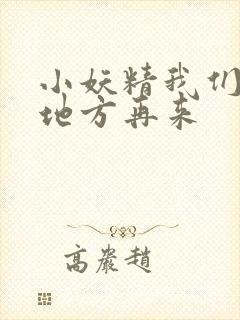 小妖精我们
地方再来
高岩赵